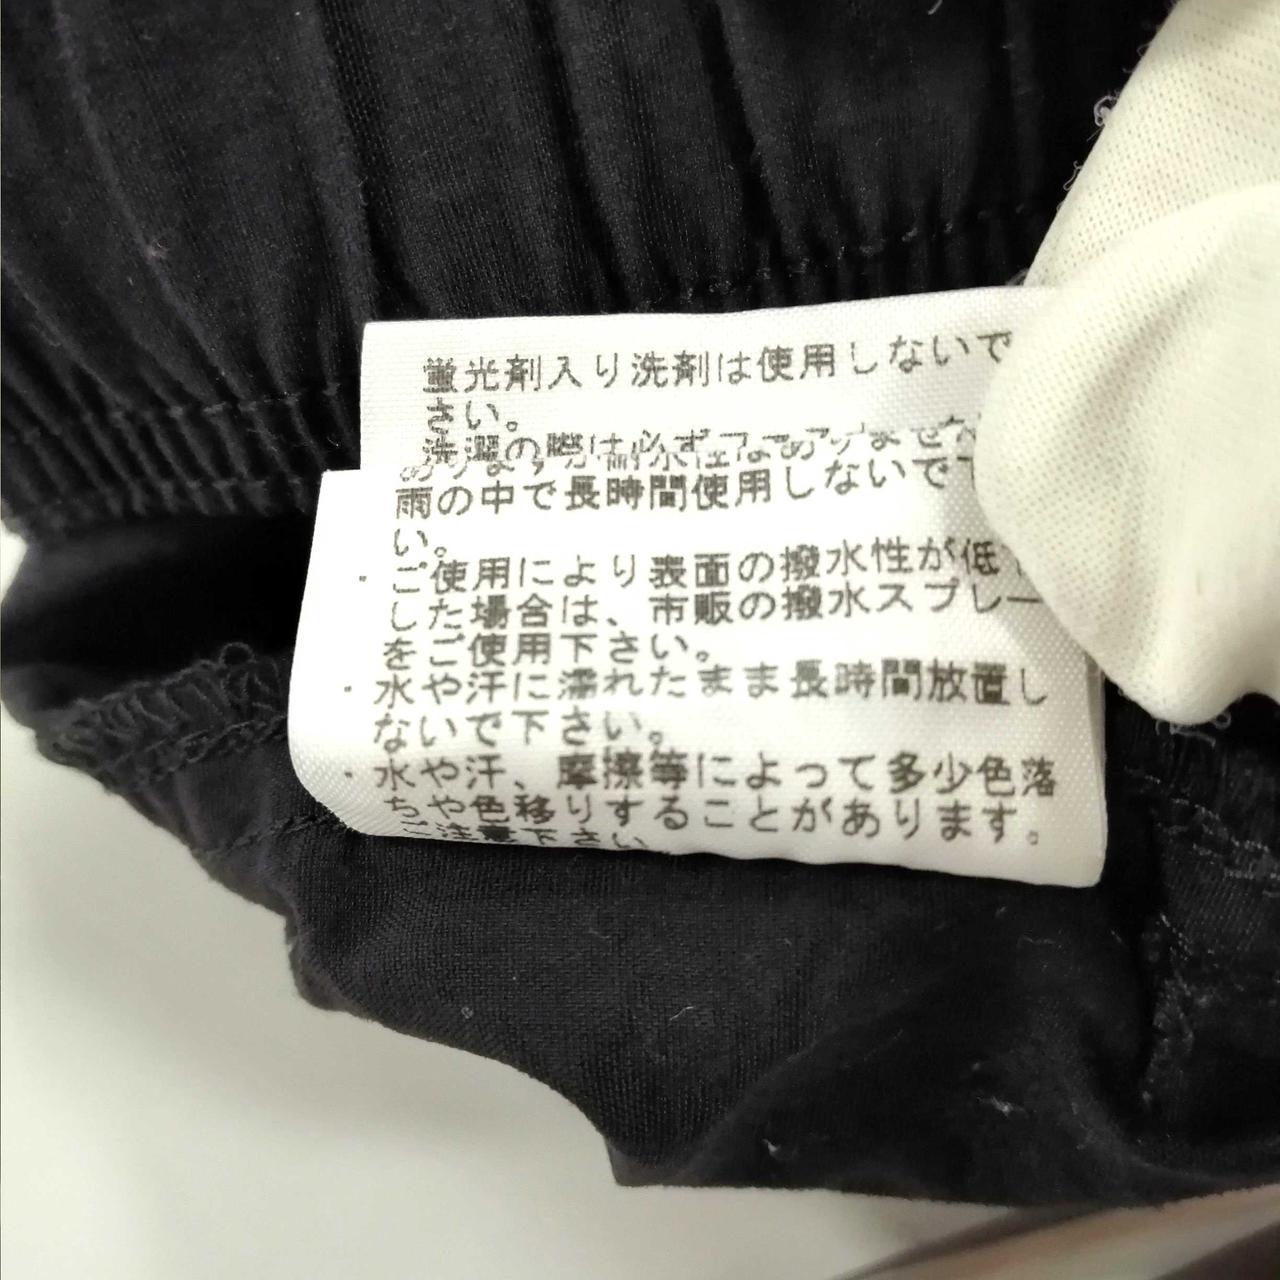 蛍光剤入り洗剤は使用しないで
さい。
洗濯の際は必ず
ありますが耐水性はありません
雨の中で長時間使用しないで
い。
・ご使用により表面の撥水性が低
した場合は、市販の撥水スプレー
をご使用下さい。
・水や汗に濡れたまま長時間放置し
ないで下さい。
・水や汗、摩擦等によって多少色落
ちや色移りすることがあります。
ご注意下さい。